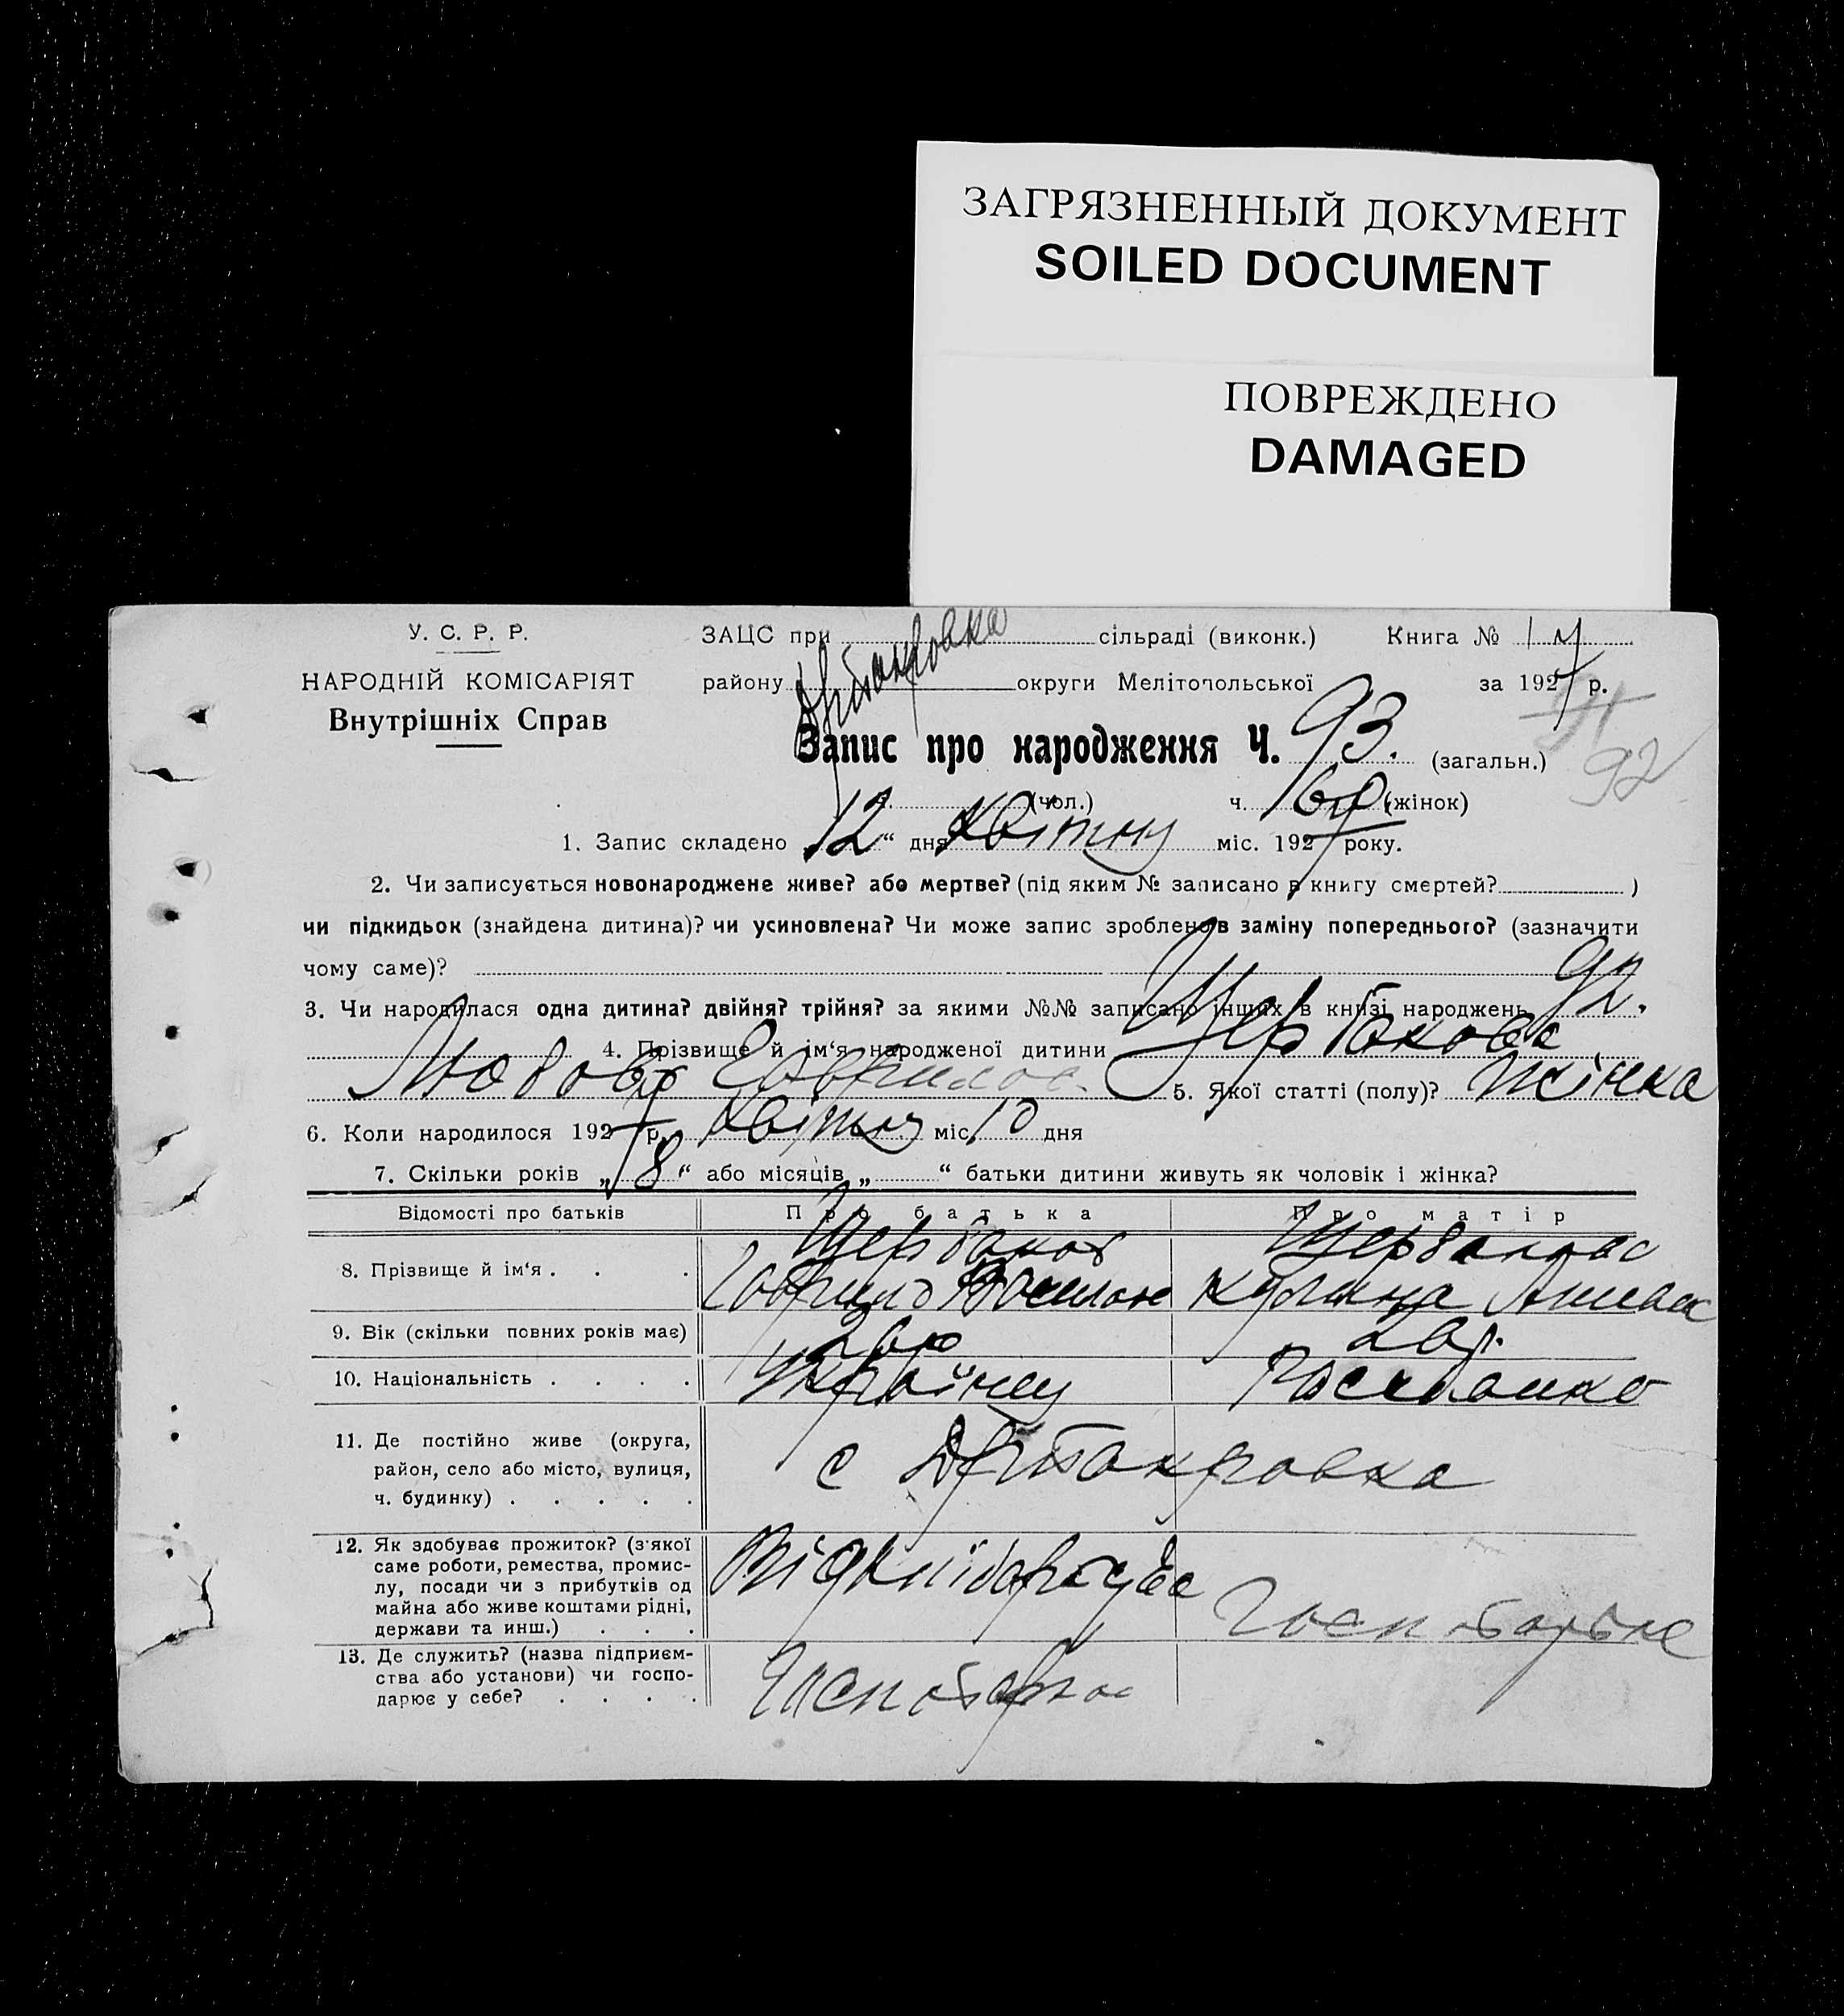 ЗАГРЯЗНЕННЫЙ ДОКУМЕНТ
SOILED DOCUMENT
ПОВРЕЖДЕНО
DAMAGED
У. С. Р. Р.
НАРОДНІЙ КОМІСАРІЯТ
Внутрішніх Справ
ЗАЦС при сільраді (виконк.) Книга № 1
району округи Мелітопольської за 1927 р.
Запис про народження Ч. 93. (загальн.)
92
ч. (чол.) ч. (жінок)
1. Запис складено „12“ дня Квітну міс. 1927 року.
2. Чи записується новонароджене живе? або мертве? (під яким № записано в книгу смертей? )
чи підкидьок (знайдена дитина)? чи усиновлена? Чи може запис зроблено в заміну попереднього? (зазначити
чому саме)?
3. Чи народилася одна дитина? двійня? трійня? за якими №№ записано інших в книзі народжень 92.
4. Прізвище й ім‘я народженої дитини Щербакова
Любовь 5. Якої статті (полу)? жінка
6. Коли народилося 1927 р. Квітну міс. 10 дня
7. Скільки років „8“ або місяців „ “ батьки дитини живуть як чоловік і жінка?
Відомості про батьків Про батька Про матір
8. Прізвище й ім‘я . . . Щербаков Щербакова
Гаврило
9. Вік (скільки повних років має)
10. Національність . . . . Українец
11. Де постійно живе (округа,
район, село або місто, вулиця,
ч. будинку) . . . . . с
12. Як здобуває прожиток? (з‘якої
саме роботи, ремества, промис-
лу, посади чи з прибутків од
майна або живе коштами рідні,
держави та инш.) . . .
13. Де служить? (назва підприєм-
ства або установи) чи госпо-
дарює у себе? . . . .